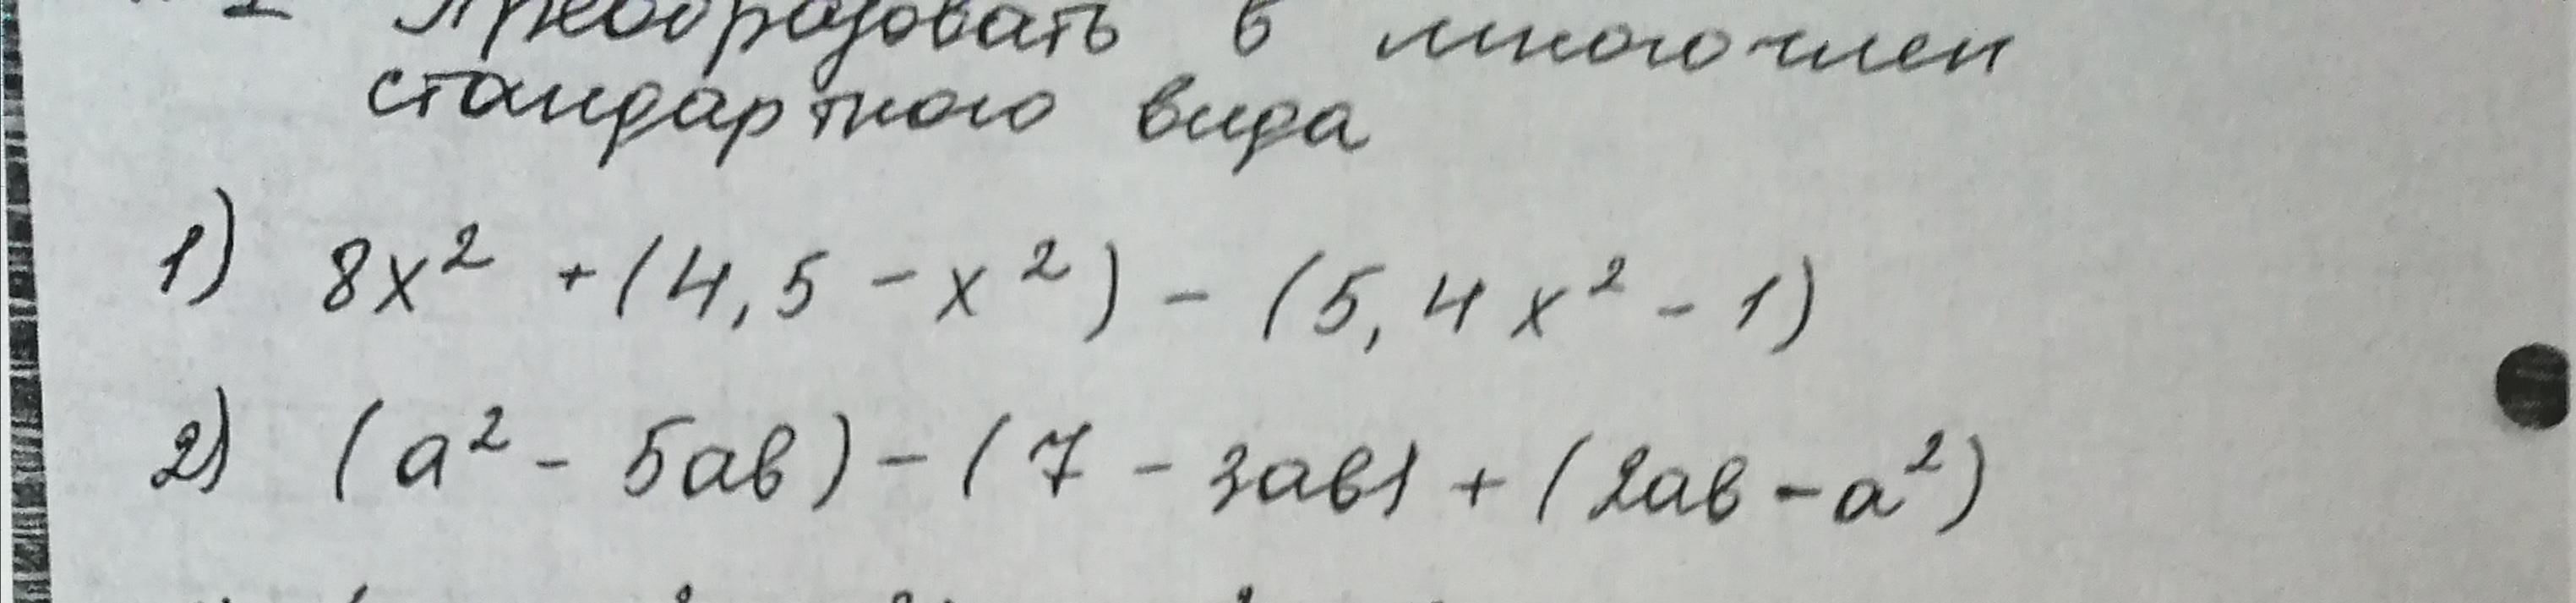 Преобразовать в многочлен
стандартного вида
1) 8x² + (4,5 - x²) - (5,4x² - 1)
2) (a² - 5ab) - (7 - 3ab) + (2ab - a²)